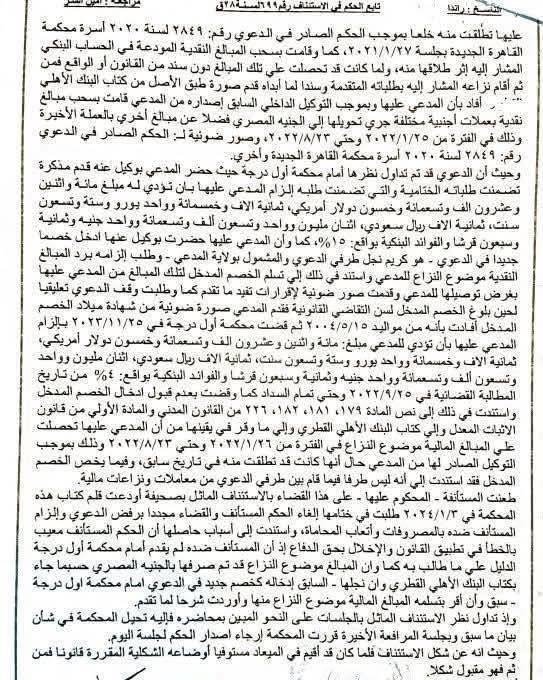 النسخ : راندا تابع الحكم في الاستئناف رقم ٦٩٩ لسنة ٢٨ق مراجعة : أمين السر
عليها تطلقت منه خلعا بموجب الحكم الصادر في الدعوي رقم: ٢٨٤٩ لسنة ٢٠٢٠ أسرة محكمة
القاهرة الجديدة بجلسة ٢٠٢١/١/٢٧، كما وقامت بسحب المبالغ النقدية المودعة في الحساب البنكي
المشار إليه إثر طلاقها منه، ولما كانت قد تحصلت علي تلك المبالغ دون سند من القانون أو الواقع فمن
ثم أقام نزاعه المشار إليه بطلباته المتقدمة وسندا لما أبداه قدم صورة طبق الأصل من كتاب البنك الأهلي
أفاد بأن المدعي عليها وبموجب التوكيل الداخلي السابق إصداره من المدعي قامت بسحب مبالغ
نقدية بعملات أجنبية مختلفة جري تحويلها إلي الجنيه المصري فضلا عن مبالغ أخري بالعملة الأخيرة
وذلك في الفترة من ٢٠٢٢/١/٢٥ وحتي ٢٠٢٢/٨/٢٣، وصور ضوئية لـ: الحكم الصادر في الدعوي
رقم: ٢٨٤٩ لسنة ٢٠٢٠ أسرة محكمة القاهرة الجديدة وأخري.
وحيث أن الدعوي قد تم تداول نظرها أمام محكمة أول درجة حيث حضر المدعي بوكيل عنه قدم مذكرة
تضمنت طلباته الختامية والتي تضمنت طلبه إلزام المدعي عليها بان تؤدي له مبلغ مائة واثنين
وعشرون الف وتسعمائة وخمسون دولار أمريكي، ثمانية الاف وخمسمائة وواحد يورو وستة وتسعون
سنت، ثمانية الاف ريال سعودي، اثنان مليون وواحد وتسعون ألف وتسعمائة وواحد جنيه وثمانية
وسبعون قرشا والفوائد البنكية بواقع: ١٥%، كما وأن المدعي عليها حضرت بوكيل عنها ادخل خصما
جديدا في الدعوي - هو كريم نجل طرفي الدعوي والمشمول بولاية المدعي - وطلب إلزامه برد المبالغ
النقدية موضوع النزاع للمدعي واستند في ذلك إلي تسلم الخصم المدخل لتلك المبالغ من المدعي عليها
بغرض توصيلها للمدعي وقدمت صور ضوئية لإقرارات تفيد ما تقدم كما وطلبت وقف الدعوي تعليقيا
لحين بلوغ الخصم المدخل لسن التقاضي القانونية فقدم المدعي صورة ضوئية من شهادة ميلاد الخصم
المدخل أفادت بأنه من مواليد ٢٠٠٤/٥/١٥ ثم قضت محكمة أول درجة في ٢٠٢٣/١١/٢٥ بإلزام
المدعي عليها بأن تؤدي للمدعي مبلغ: مائة واثنين وعشرون الف وتسعمائة وخمسون دولار أمريكي،
ثمانية الاف وخمسمائة وواحد يورو وستة وتسعون سنت، ثمانية الاف ريال سعودي، اثنان مليون وواحد
وتسعون ألف وتسعمائة وواحد جنيه وثمانية وسبعون قرشا والفوائد البنكية بواقع: ٤% من تاريخ
المطالبة القضائية في ٢٠٢٢/٩/٢٥ وحتي تمام السداد كما وقضت بعدم قبول ادخال الخصم المدخل
واستندت في ذلك إلي نص المادة ١٧٩، ١٨١، ١٨٢، ٢٢٦ من القانون المدني والمادة الأولي من قانون
الاثبات المعدل وإلي كتاب البنك الأهلي القطري وإلي ما وقر في يقينها من أن المدعي عليها تحصلت
علي المبالغ المالية موضوع النزاع في الفترة من ٢٠٢٢/١/٢٦ وحتي ٢٠٢٢/٨/٢٣ وذلك بموجب
التوكيل الصادر لها من المدعي حال أنها كانت قد تطلقت منه في تاريخ سابق، وفيما يخص الخصم
المدخل فقد استندت إلي أنه ليس طرفا فيما قام بين طرفي الدعوي من معاملات ونزاعات مالية.
طعنت المستأنفة - المحكوم عليها - علي هذا القضاء بالاستئناف الماثل بصحيفة أودعت قلم كتاب هذه
المحكمة في ٢٠٢٤/١/٣ طلبت في ختامها إلغاء الحكم المستأنف والقضاء مجددا برفض الدعوي وإلزام
المستأنف ضده بالمصروفات وأتعاب المحاماة، واستندت إلي أسباب حاصلها أن الحكم المستأنف معيب
بالخطأ في تطبيق القانون والإخلال بحق الدفاع إذ أن المستأنف ضده لم يقدم أمام محكمة أول درجة
الدليل علي ما طالب به كما وان المبالغ موضوع النزاع قد تم صرفها بالجنيه المصري حسبما جاء
بكتاب البنك الأهلي القطري وان نجلها - السابق إدخاله كخصم جديد في الدعوي امام محكمة اول درجة
- سبق وأن أقر بتسلمه المبالغ المالية موضوع النزاع منها وأوردت شرحا لما تقدم.
وإذ تداول نظر الاستئناف الماثل بالجلسات علي النحو المبين بمحاضره فإليه تحيل المحكمة في شأن
بيان ما سبق وبجلسة المرافعة الأخيرة قررت المحكمة إرجاء إصدار الحكم لجلسة اليوم.
وحيث انه عن شكل الاستئناف فلما كان قد أقيم في الميعاد مستوفيا أوضاعه الشكلية المقررة قانونا فمن
ثم فهو مقبول شكلا.